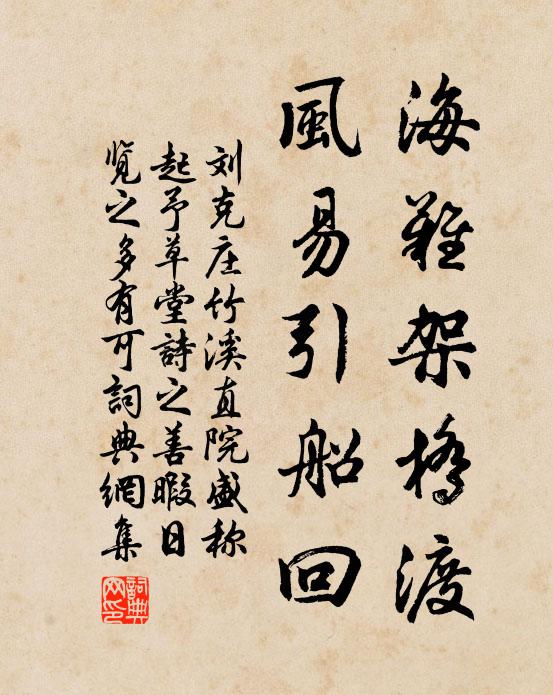 海難架橋渡
風易引船回
刘克庄竹溪直院盛称
起予草堂詩之善暇日
覽之多有可詞典網集
詞典網印